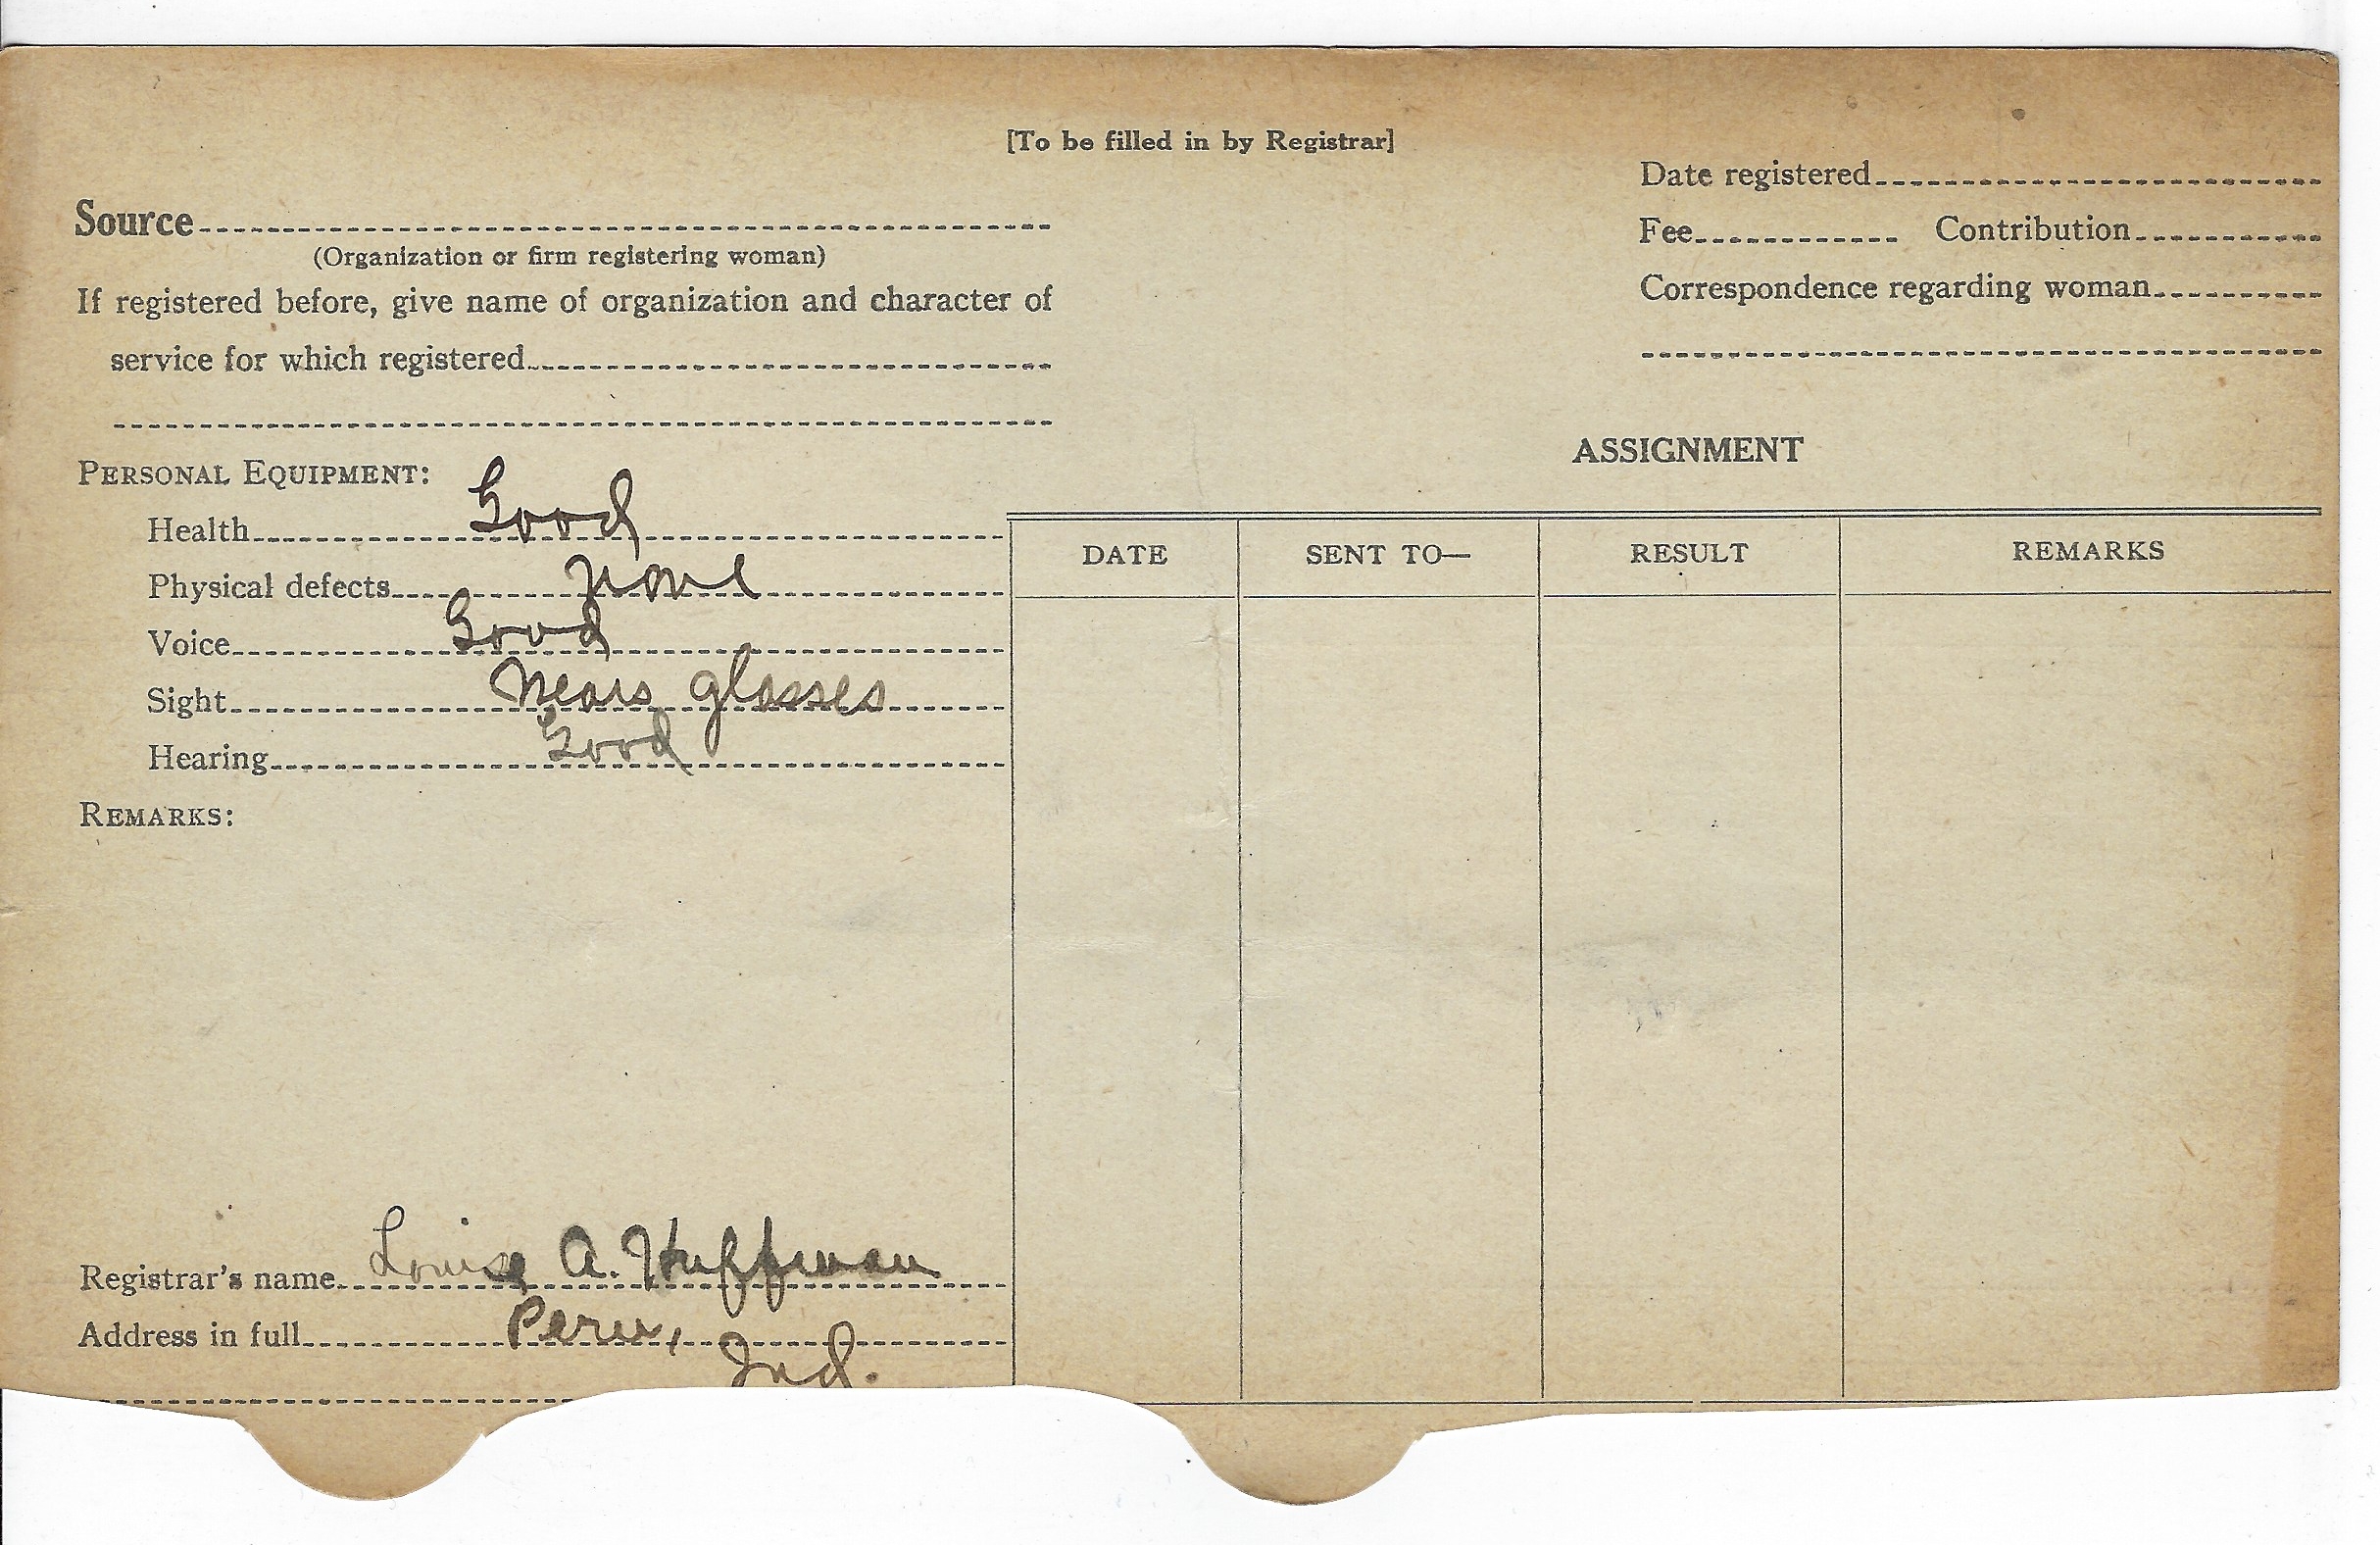 [To be filled in by Registrar]
Date registered
Source
(Organization or firm registering woman)
Fee Contribution
If registered before, give name of organization and character of
Correspondence regarding woman
service for which registered
ASSIGNMENT
PERSONAL EQUIPMENT:
Health Good
Physical defects None
Voice Good
Sight Wears glasses
Hearing Good
DATE SENT TO— RESULT REMARKS
REMARKS:
Registrar's name Louise A. Huffman
Address in full Peru,
Ind.